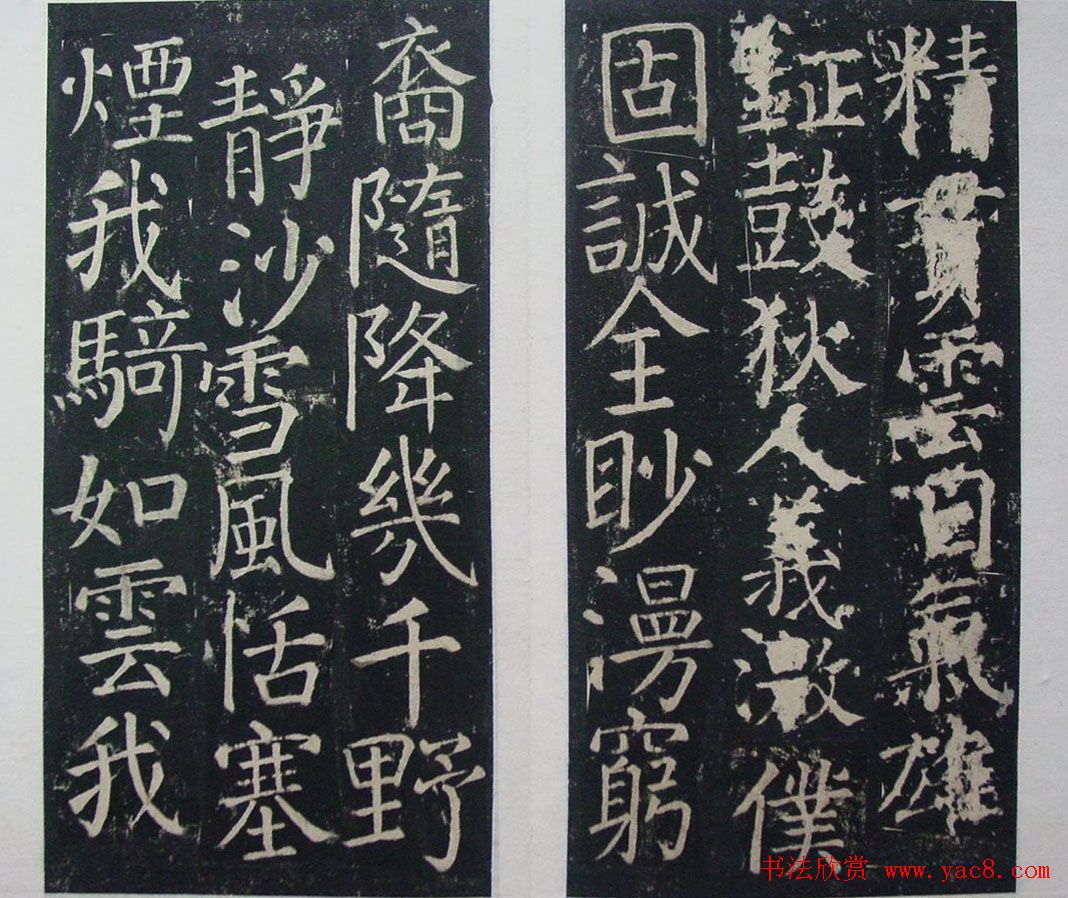 精貫雲白氣雄
鉦鼓狄人義激僕
固誠全眇漫窮
裔隨降幾千野
靜沙雪風恬塞
煙我騎如雲我
书法欣赏 www.yac8.com